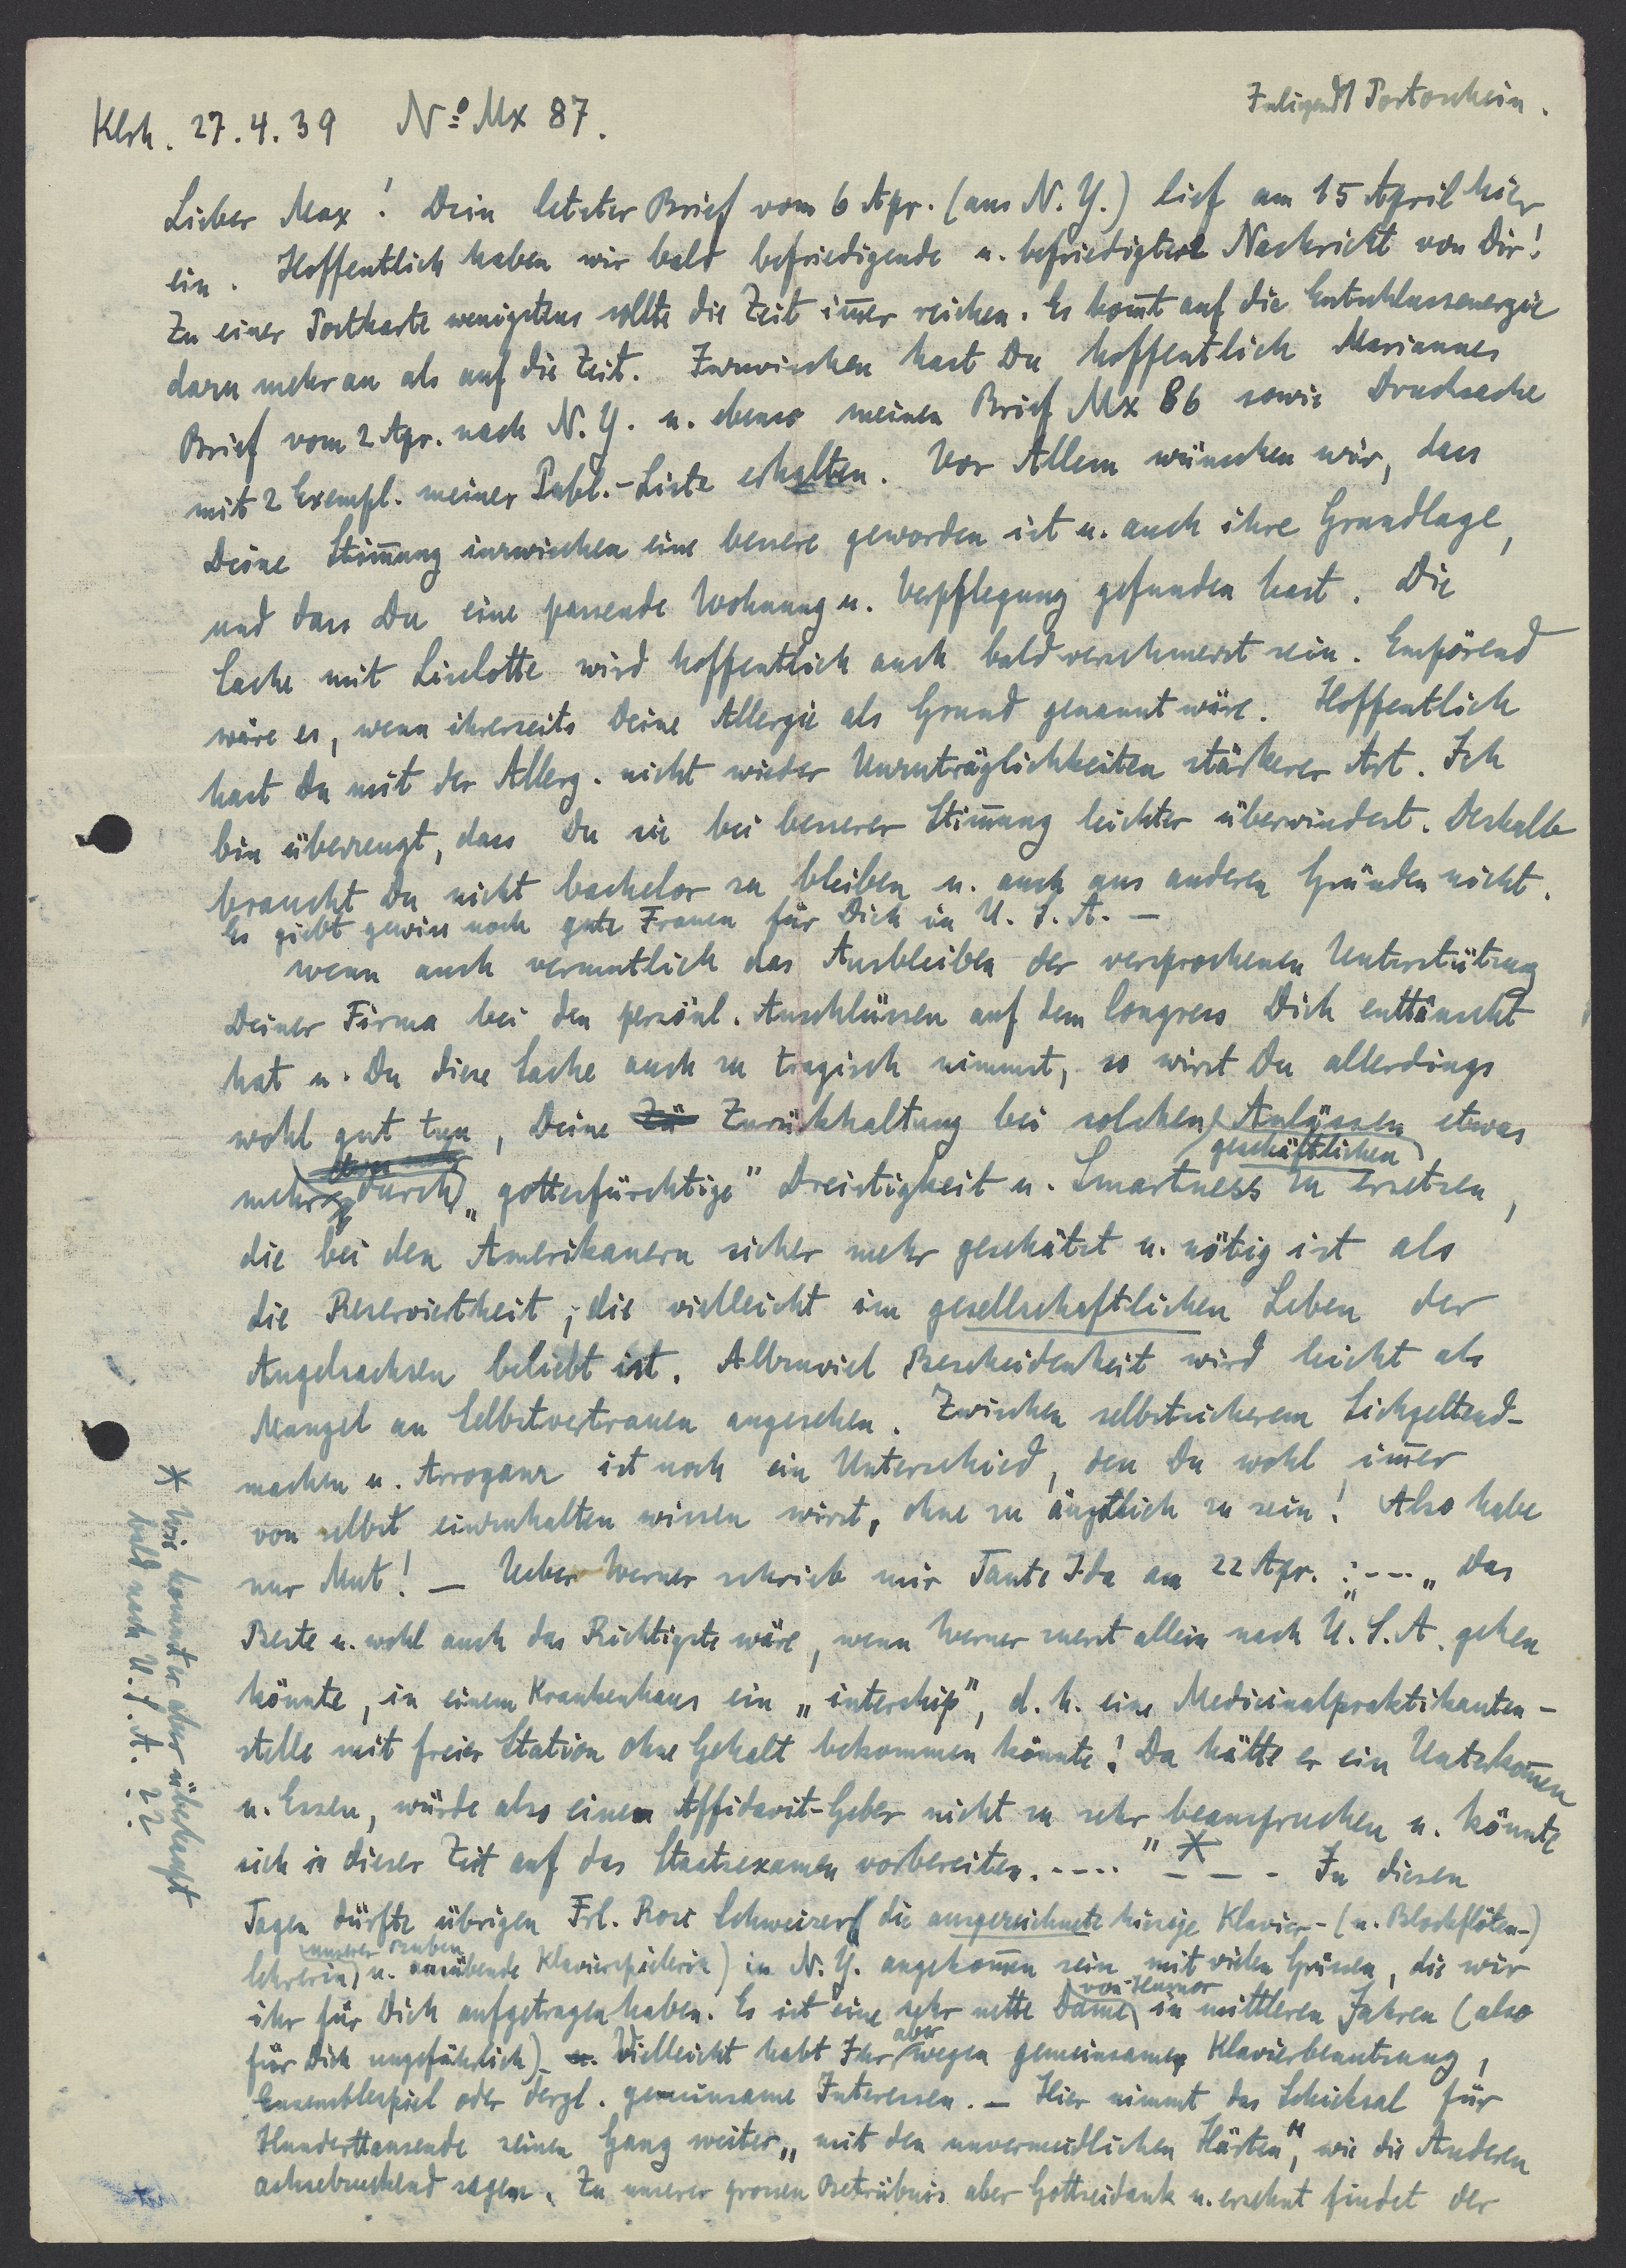 Klsh. 27.4.39 No Mx 87.
Inliegend 1 Portoschein.
Lieber Max! Dein letzter Brief vom 6 Apr. (aus N. Y.) lief am 15 April hier
ein. Hoffentlich haben wir bald befriedigende u. befriedigtere Nachricht von Dir!
Zu einer Postkarte wenigstens sollte die Zeit im̅er reichen. Es kom̅t auf die Entschlussenergie
dazu mehr an als auf die Zeit. Inzwischen hast Du hoffentlich Mariannes
Brief vom 2 Apr. nach N. Y. u. ebenso meinen Brief Mx 86 sowie Drucksache
mit 2 Exempl. meiner Publ.-Liste erhalten. Vor Allem wünschen wir, dass
Deine Stim̅ung inzwischen eine bessere geworden ist u. auch ihre Grundlage,
und dass Du eine passende Wohnung u. Verpflegung gefunden hast. Die
Sache mit Liselotte wird hoffentlich auch bald verschmerzt sein. Empörend
wäre es, wenn ihrerseits Deine Allergie als Grund genannt wäre. Hoffentlich
hast Du mit der Allerg. nicht wieder Unzuträglichkeiten stärkerer Art. Ich
bin überzeugt, dass Du sie bei besserer Stim̅ung leichter überwindest. Deshalb
brauchst Du nicht bachelor zu bleiben u. auch aus anderen Gründen nicht.
Es giebt gewiss noch gute Frauen für Dich in U. S. A. —
Wenn auch vermutlich das Ausbleiben der versprochenen Unterstützung
Deiner Firma bei den persönl. Anschlüssen auf dem Congress Dich enttäuscht
hat u. Du diese Sache auch zu tragisch nimmst, so wirst Du allerdings
wohl gut tun, Deine Zü Zurückhaltung bei solchen Anlässen etwas
geschäftlichen
mehr durch „gottesfürchtige" Dreistigkeit u. Smartness zu ersetzen,
die bei den Amerikanern sicher mehr geschätzt u. nötig ist als
die Reserviertheit, die vielleicht im gesellschaftlichen Leben der
Angelsachsen beliebt ist. Allzuviel Bescheidenheit wird leicht als
Mangel an Selbstvertrauen angesehen. Zwischen selbstsicherem Sichgeltend-
machen u. Arroganz ist noch ein Unterschied, den Du wohl im̅er
von selbst einzuhalten wissen wirst, ohne zu ängstlich zu sein! Also habe
nur Mut! — Ueber Werner schrieb mir Tante Ida am 22 Apr. : --- „Das
Beste u. wohl auch das Richtigste wäre, wenn Werner zuerst allein nach U. S. A. gehen
könnte, in einem Krankenhaus ein „intership", d. h. eine Medicinalpraktikanten-
stelle mit freier Station ohne Gehalt bekommen könnte! Da hätte er ein Unterkom̅en
u. Essen, würde also einen Affidavit-Geber nicht zu sehr beanspruchen u. könnte
sich in dieser Zeit auf das Staatsexamen vorbereiten. ---- " * - - - In diesen
Tagen dürfte übrigen Frl. Rose Schweizer (die ausgezeichnete hiesige Klavier- (u. Blockflöten-)
unserer Buben
lehrerin u. ausübende Klavierspielerin) in N. Y. angekom̅en sein mit vielen Grüssen, die wir
von Humor
ihr für Dich aufgetragen haben. Es ist eine sehr nette Dame in mittleren Jahren (also
aber
für Dich ungefährlich). Vielleicht habt Ihr wegen gemeinsamer Klavierbenutzung,
Ensemblespiel oder dergl. gemeinsame Interessen. — Hier nimmt das Schicksal für
Hunderttausende seinen Gang weiter „mit den unvermeidlichen Härten", wie die Anderen
achsezuckend sagen. Zu unserer grossen Betrübnis aber Gottseidank u. ersehnt findet der
* Wie kommt er aber überhaupt
bald nach U. S. A. ??